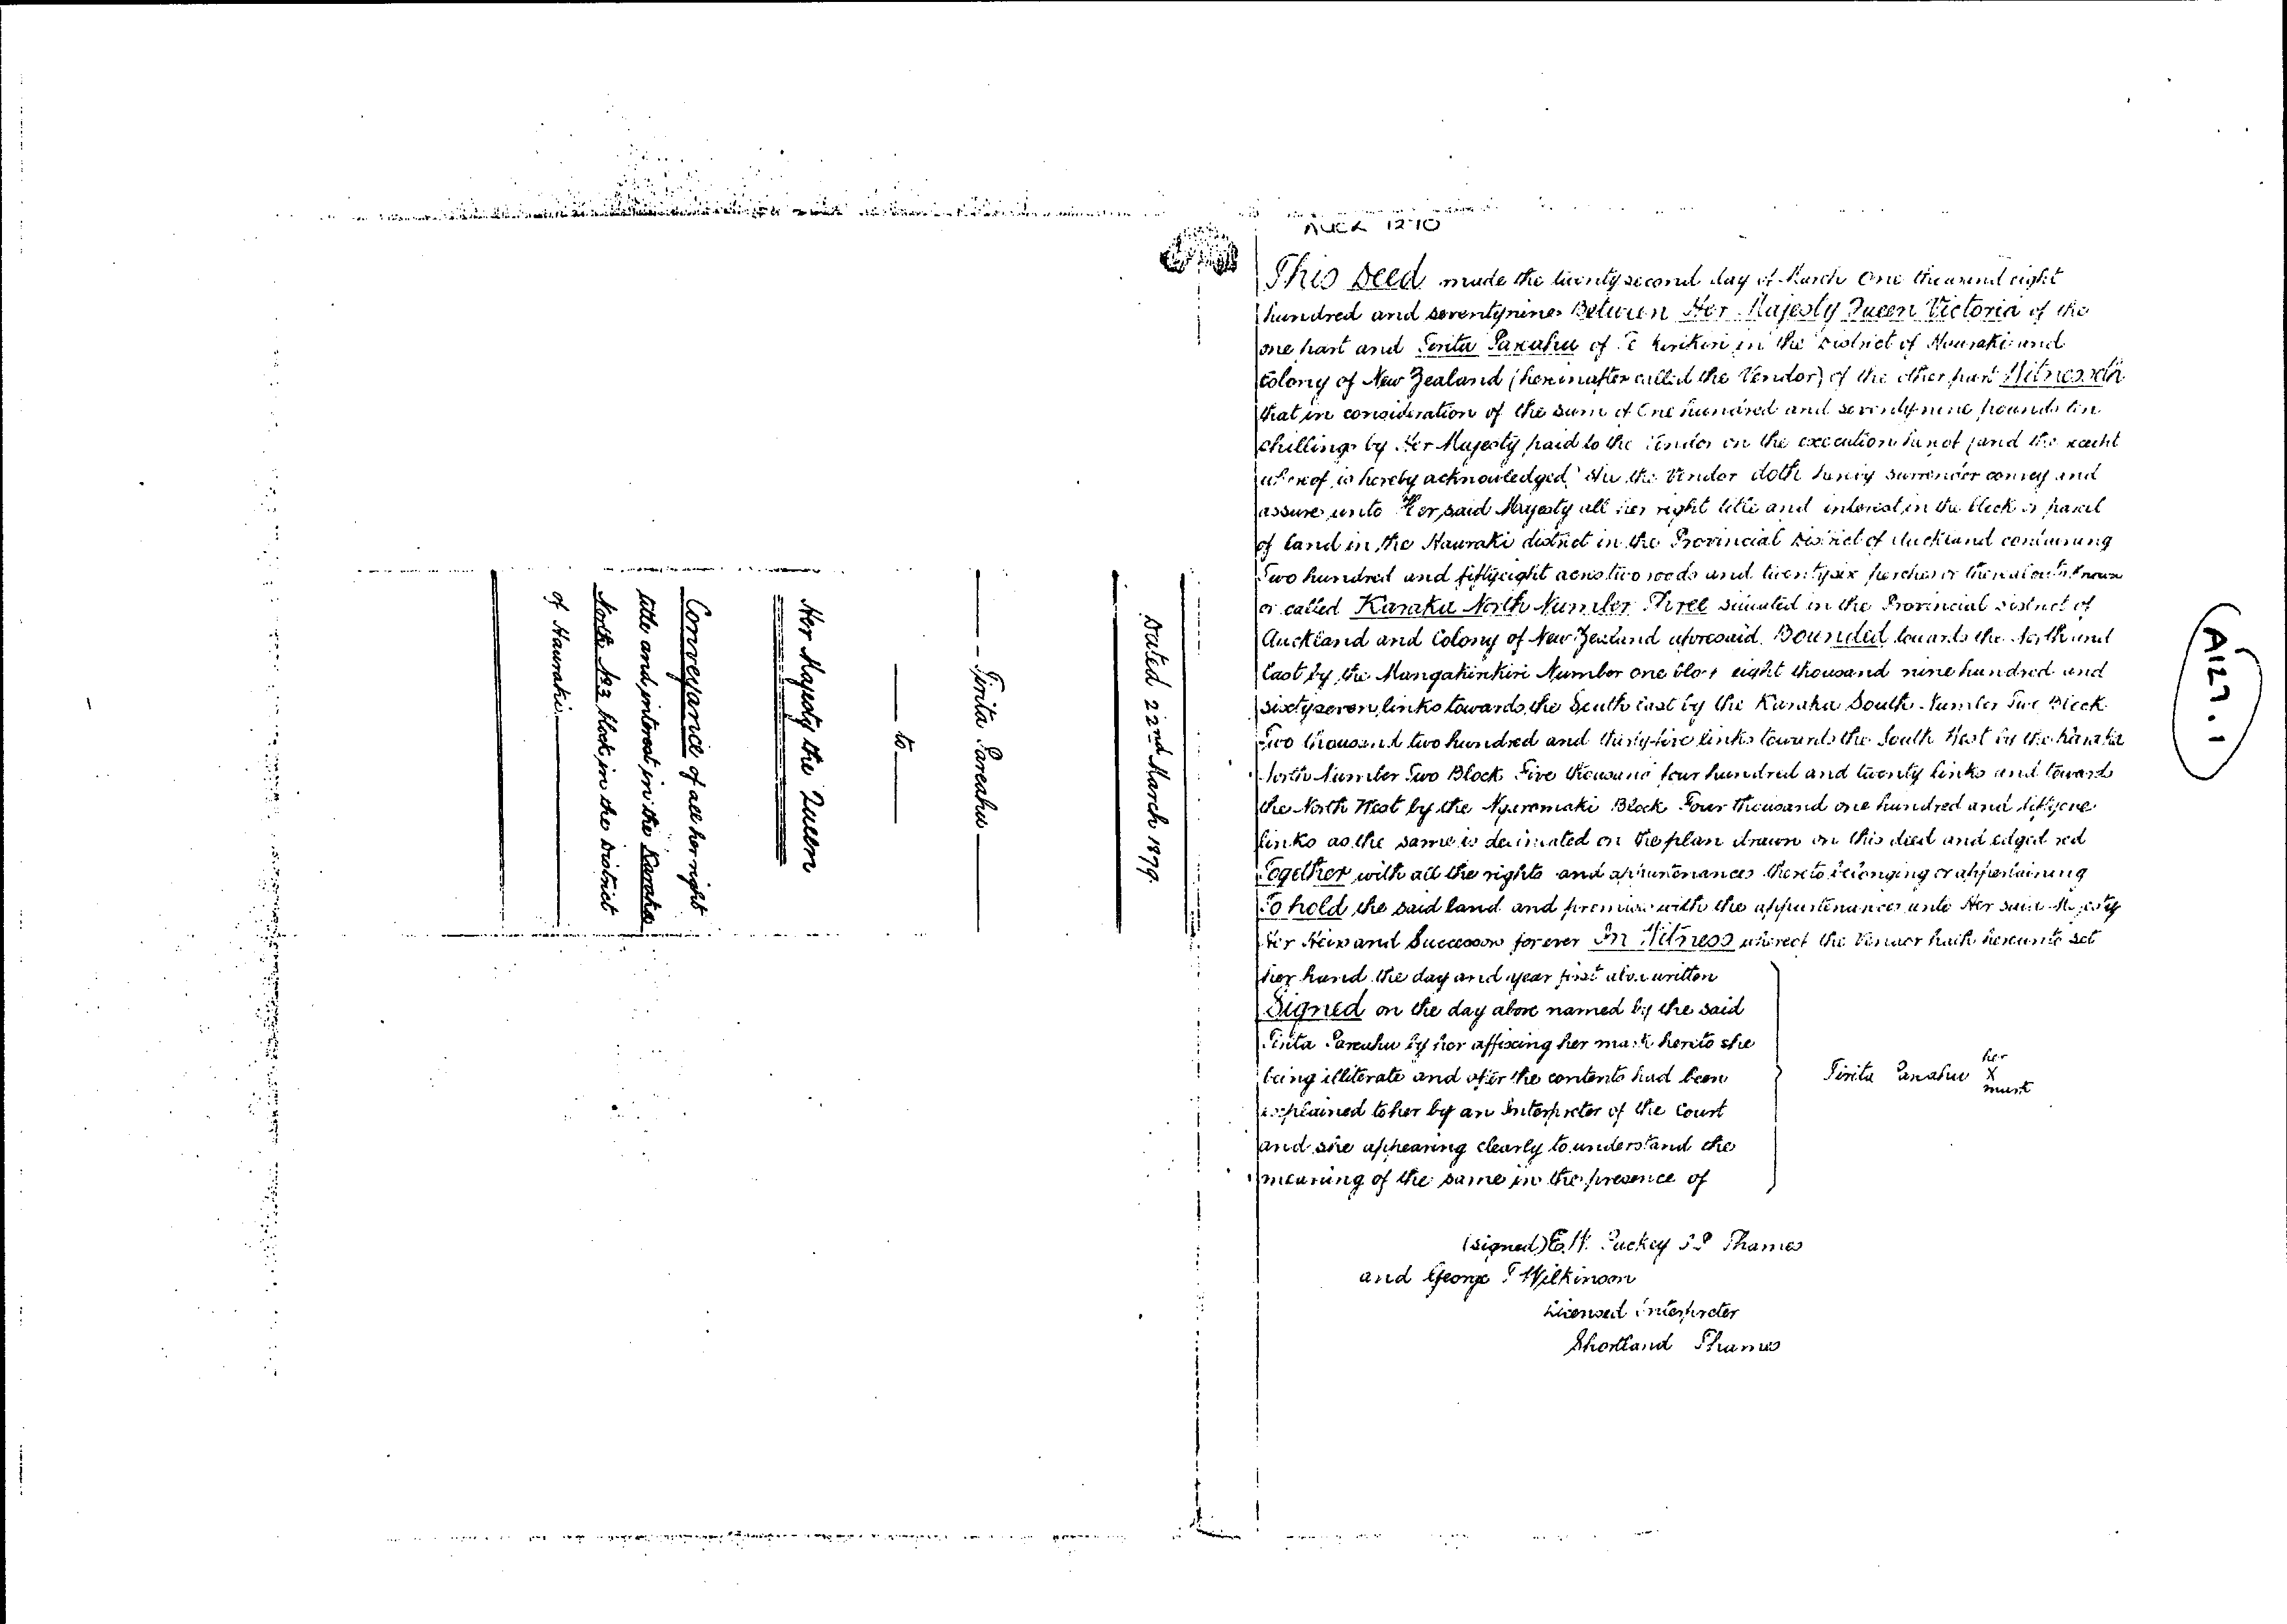 AUCK 1270
This Deed made the twentysecond day of March One thousand eight
hundred and seventynine Between Her Majesty Queen Victoria of the
one part and Tirita Pareahu of Te Kirikiri in the District of Hauraki and
Colony of New Zealand (hereinafter called the Vendor) of the other part Witnesseth
that in consideration of the sum of One hundred and seventynine pounds ten
shillings by Her Majesty paid to the Vendor on the execution hereof (and the receipt
whereof is hereby acknowledged) She the Vendor doth hereby surrender convey and
assure unto Her said Majesty all her right title and interest in the block or parcel
of land in the Hauraki district in the Provincial District of Auckland containing
Two hundred and fiftyeight acres two roods and twentysix perches or thereabouts known
or called Karaka North Number Three situated in the Provincial District of
Auckland and Colony of New Zealand aforesaid. Bounded towards the North and
East by the Mangakirikiri Number one block eight thousand nine hundred and
sixtyseven links towards the South East by the Karaka South Number Two Block
Two thousand two hundred and thirtyfive links towards the South West by the Karaka
North Number Two Block Five thousand four hundred and twenty links and towards
the North West by the Block Four thousand one hundred and fiftyone
links as the same is delineated on the plan drawn on this deed and edged red
Together with all the rights and appurtenances thereto belonging or appertaining
To hold the said land and premises with the appurtenances unto Her said Majesty
Her Heirs and Successors forever In Witness whereof the Vendor hath hereunto set
her hand the day and year first above written
Signed on the day above named by the said
Tirita Pareahu by her affixing her mark hereto she
being illiterate and after the contents had been
explained to her by an Interpreter of the Court
and she appearing clearly to understand the
meaning of the same in the presence of
Tirita Pareahu her
X
mark
(signed) E. W. Puckey J P Thames
and George T Wilkinson
Licensed Interpreter
Shortland Thames
A127.1
Dated 22nd March 1879.
Tirita Pareahu
to
Her Majesty the Queen
Conveyance of all her right
title and interest in the Karaka
North No 3 block in the District
of Hauraki